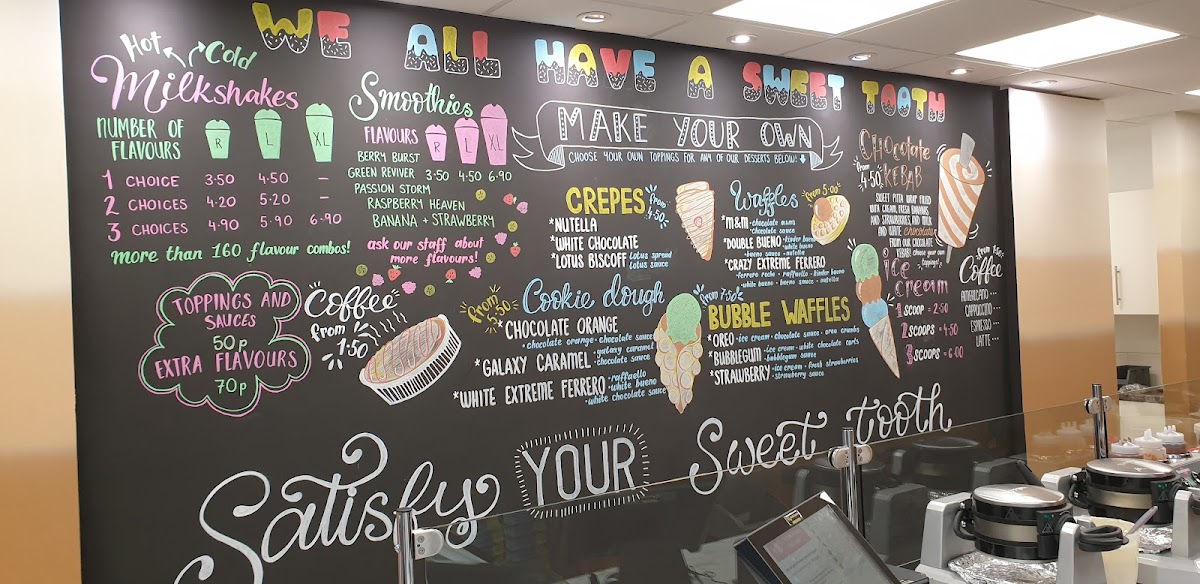 WE ALL HAVE A SWEET TOOTH
Hot Cold
Milkshakes
NUMBER OF FLAVOURS R L XL
1 CHOICE 3·50 4·50 –
2 CHOICES 4·20 5·20 –
3 CHOICES 4·90 5·90 6·90
more than 160 flavour combos!
TOPPINGS AND
SAUCES
50p
EXTRA FLAVOURS
70p
Smoothies
FLAVOURS R L XL
BERRY BURST
GREEN REVIVER 3·50 4·50 6·90
PASSION STORM
RASPBERRY HEAVEN
BANANA + STRAWBERRY
ask our staff about
more flavours!
Coffee
from
1·50
MAKE YOUR OWN
CHOOSE YOUR OWN TOPPINGS FOR ANY OF OUR DESSERTS BELOW!
CREPES from 4·50
*NUTELLA
*WHITE CHOCOLATE
*LOTUS BISCOFF lotus spread
lotus sauce
Waffles from 5·00
*M&M ·chocolate m&ms
·chocolate sauce
*DOUBLE BUENO ·kinder bueno
·white bueno
·bueno sauce ·nutella
*CRAZY EXTREME FERRERO
·ferrero roche ·raffaello ·kinder bueno
·white bueno ·bueno sauce ·nutella
from
5·50
Cookie dough
*CHOCOLATE ORANGE
·chocolate orange ·chocolate sauce
*GALAXY CARAMEL ·galaxy caramel
·chocolate sauce
*WHITE EXTREME FERRERO ·raffaello
·white bueno
·white chocolate sauce
from 7·50
BUBBLE WAFFLES
*OREO ·ice cream ·chocolate sauce ·oreo crumbs
*BUBBLEGUM ·ice cream ·white chocolate curls
·bubblegum sauce
*STRAWBERRY ·ice cream ·fresh strawberries
·strawberry sauce
CHOCOLATE
KEBAB
from
4·50
SWEET PITTA WRAP FILLED
WITH CREAM, FRESH BANANAS
AND STRAWBERRIES AND MILK
AND WHITE chocolate
FROM OUR CHOCOLATE
KEBAB! choose your own
toppings!
ice
cream
1 SCOOP · 2·50
2 SCOOPS · 4·50
3 SCOOPS · 6·00
Coffee
AMERICANO
CAPPUCCINO
ESPRESSO
LATTE
Satisfy YOUR Sweet tooth